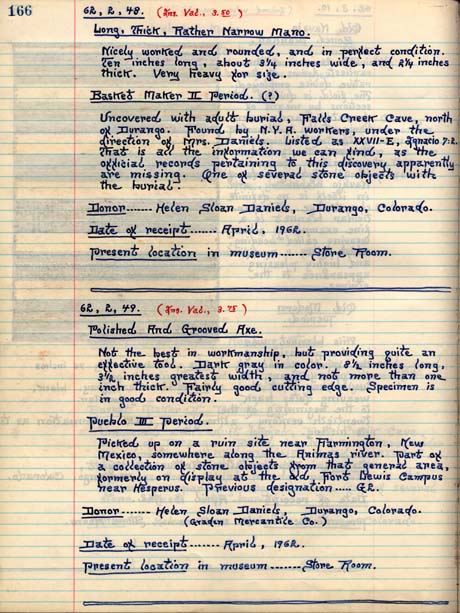 166
62, 2, 48. (Ins. Val., 3.50)
Long, Thick, Rather Narrow Mano.
Nicely worked and rounded, and in perfect condition.
Ten inches long, about 3¼ inches wide, and 2¼ inches
thick. Very heavy for size.
Basket Maker II Period. (?)
Uncovered with adult burial, Falls Creek Cave, north
of Durango. Found by N.Y.A. workers, under the
direction of Mrs. Daniels. Listed as XXVII-E, Ignacio 7:2.
That is all the information we can find, as the
official records pertaining to this discovery apparently
are missing. One of several stone objects with
the burial.
Donor ------ Helen Sloan Daniels, Durango, Colorado.
Date of receipt ------ April, 1962.
Present location in museum ------- Store Room.
62, 2, 49. (Ins. Val., 3.75)
Polished And Grooved Axe.
Not the best in workmanship, but providing quite an
effective tool. Dark gray in color. 8½ inches long,
3½ inches greatest width, and not more than one
inch thick. Fairly good cutting edge. Specimen is
in good condition.
Pueblo III Period.
Picked up on a ruin site near Farmington, New
Mexico, somewhere along the Animas river. Part of
a collection of stone objects from that general area,
formerly on display at the old Fort Lewis Campus
near Hesperus. Previous designation ..... G2.
Donor ------ Helen Sloan Daniels, Durango, Colorado.
(Graden Mercantile Co.)
Date of receipt ------ April, 1962.
Present location in museum ------- Store Room.